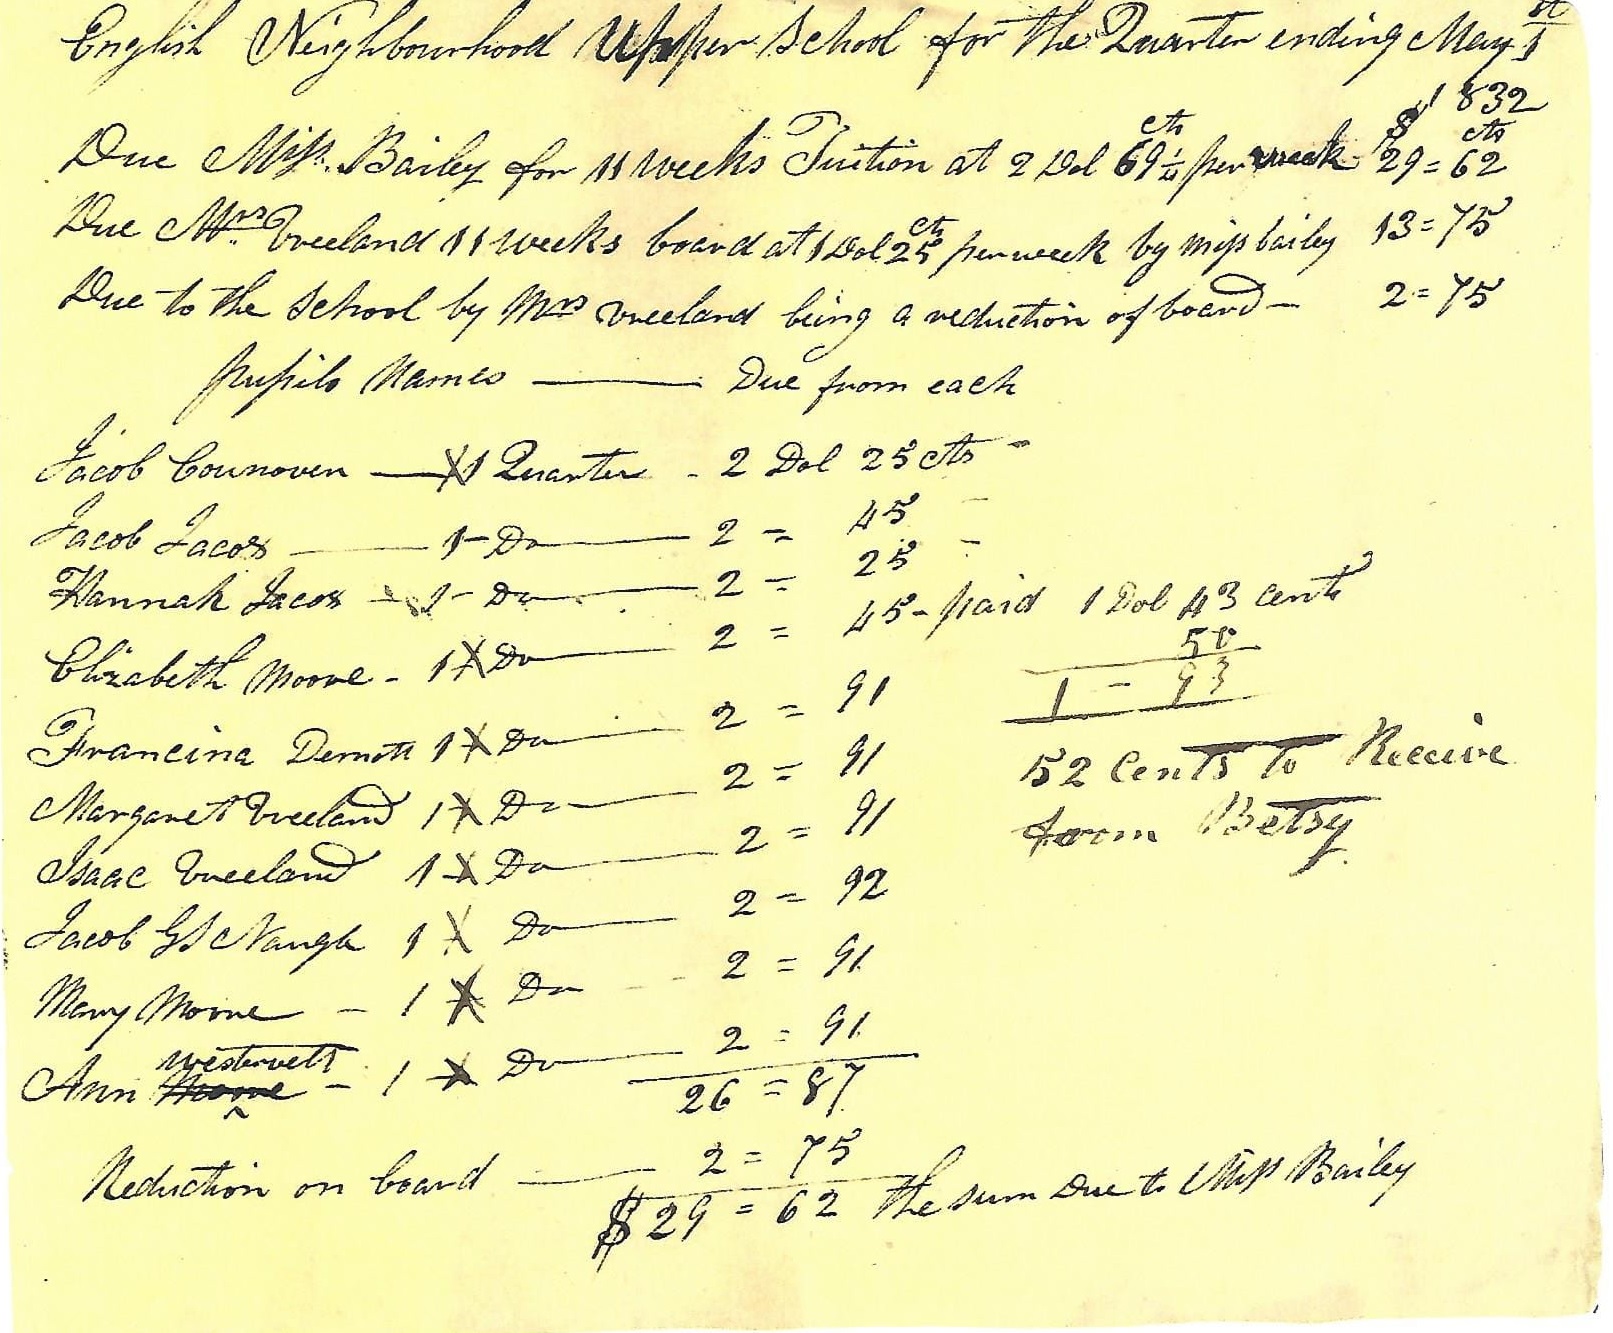 English Neighbourhood Upper School for the Quarter ending May 1st
1832
Due Miss Bailey for 11 weeks Tuition at 2 Dol 69¼ cts per week - $ 29 = 62 cts
Due Mrs Vreeland 11 weeks board at 1 Dol 25 cts per week by miss bailey 13 = 75
Due to the School by Mrs vreeland being a reduction of board - 2 = 75
pupils Names — Due from each
Jacob Counoven — X1 Quarter - 2 Dol 25 cts -
Jacob Jacox — 1 - Do — 2 = 45 -
Hannah Jacox - 1 - Do — 2 = 25 -
Elizabeth Moore - 1 X Do — 2 = 45 - paid 1 Dol 43 cents
50
1 - 93
Francina Demott 1 X Do — 2 = 91
52 Cents to Receive
from Betsy
Margaret Vreeland 1 X Do — 2 = 91
Isaac Vreeland 1 X Do — 2 = 91
Jacob GS Naugle 1 X Do — 2 = 92
Mary Moore - 1 X Do - - 2 = 91
westervelt
Ann Moore - 1 X Do — 2 = 91
26 = 87
Reduction on board — 2 = 75
$ 29 = 62 the sum Due to Miss Bailey